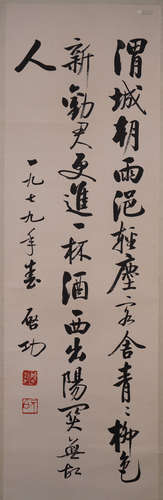 渭城朝雨浥輕塵客舍青々柳色
新勸君更進一杯酒西出陽關無故
人
一九七九年春 啟功